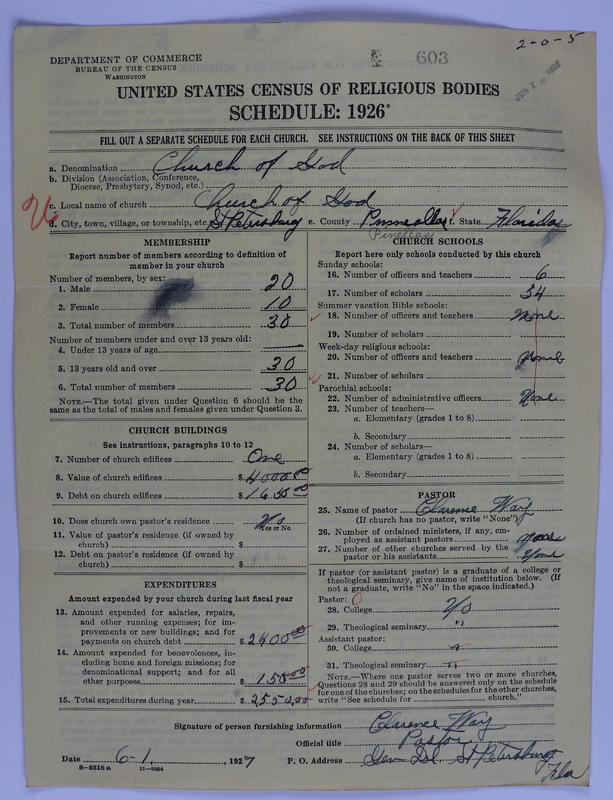 2-0-5
DEPARTMENT OF COMMERCE
BUREAU OF THE CENSUS
WASHINGTON
603
UNITED STATES CENSUS OF RELIGIOUS BODIES
SCHEDULE: 1926
FILL OUT A SEPARATE SCHEDULE FOR EACH CHURCH. SEE INSTRUCTIONS ON THE BACK OF THIS SHEET
a. Denomination Church of God
b. Division (Association, Conference, Diocese, Presbytery, Synod, etc.)
c. Local name of church Church of God
d. City, town, village, or township, etc. St Petersburg e. County Pinneallas f. State Florida
Pinellas
MEMBERSHIP
Report number of members according to definition of
member in your church
Number of members, by sex:
1. Male 20
2. Female 10
3. Total number of members 30
Number of members under and over 13 years old:
4. Under 13 years of age
5. 13 years old and over 30
6. Total number of members 30
NOTE.—The total given under Question 6 should be
the same as the total of males and females given under Question 3.
CHURCH BUILDINGS
See instructions, paragraphs 10 to 12
7. Number of church edifices One
8. Value of church edifices $4000.00
9. Debt on church edifices $
10. Does church own pastor's residence No
Yes or No
11. Value of pastor's residence (if owned by
church) $
12. Debt on pastor's residence (if owned by
church) $
EXPENDITURES
Amount expended by your church during last fiscal year
13. Amount expended for salaries, repairs,
and other running expenses; for im-
provements or new buildings; and for
payments on church debt $2400.00
14. Amount expended for benevolences, in-
cluding home and foreign missions; for
denominational support; and for all
other purposes $150.00
15. Total expenditures during year $2550.00
CHURCH SCHOOLS
Report here only schools conducted by this church
Sunday schools:
16. Number of officers and teachers 6
17. Number of scholars 54
Summer vacation Bible schools:
18. Number of officers and teachers None
19. Number of scholars
Week-day religious schools:
20. Number of officers and teachers None
21. Number of scholars
Parochial schools:
22. Number of administrative officers None
23. Number of teachers—
a. Elementary (grades 1 to 8)
b. Secondary
24. Number of scholars—
a. Elementary (grades 1 to 8)
b. Secondary
PASTOR
25. Name of pastor Clarence Way
(If church has no pastor, write "None")
26. Number of ordained ministers, if any, em-
ployed as assistant pastors None
27. Number of other churches served by the
pastor or his assistants None
If pastor (or assistant pastor) is a graduate of a college or
theological seminary, give name of institution below. (If
not a graduate, write "No" in the space indicated.)
Pastor:
28. College No
29. Theological seminary "
Assistant pastor:
30. College
31. Theological seminary
NOTE.—Where one pastor serves two or more churches,
Questions 28 and 29 should be answered only on the schedule
for one of the churches; on the schedules for the other churches,
write "See schedule for church."
Signature of person furnishing information Clarence Way
Official title Pastor
Date 6-1, 1927 P. O. Address Gen Del. St Petersburg
Fla
8-5518a 11-9054